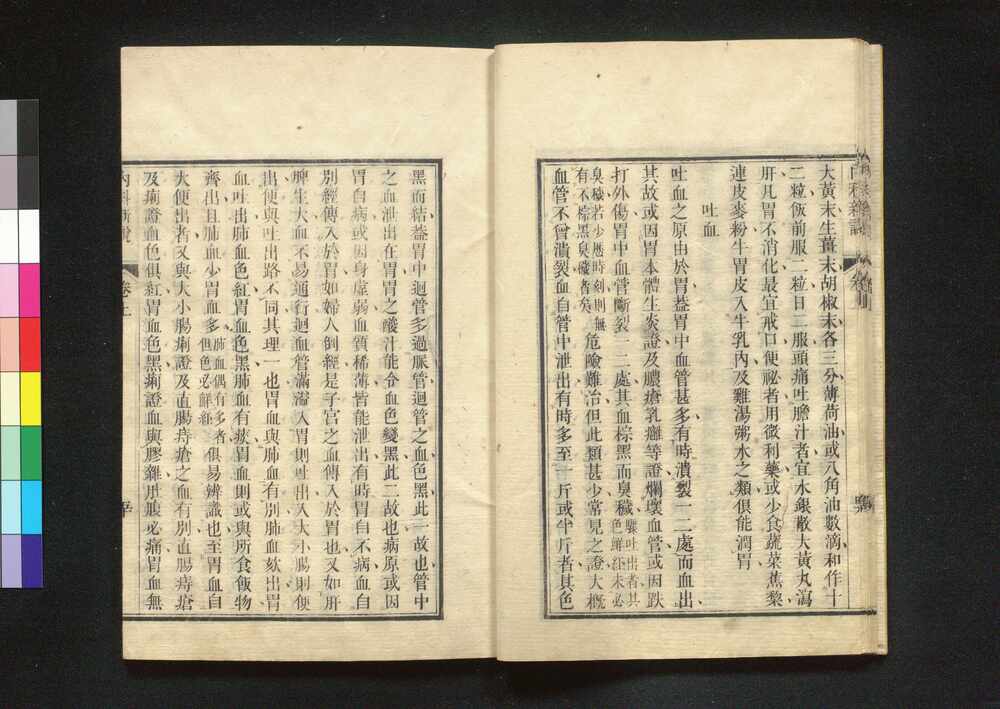 大黃末生薑末胡椒末各三分薄荷油或八角油數滴和作十
二粒飯前服二粒日二服頭痛吐膽汁者宜水銀散大黃丸瀉
肝凡胃不消化最宜戒口便祕者用微利藥或少食蔬菜蕉黎
連皮麥粉牛胃皮入牛乳內及雞湯粥水之類俱能潤胃
吐血
吐血之原由於胃葢胃中血管甚多有時潰裂一二處而血出
其故或因胃本體生炎證及膿瘡乳癰等證爛壞血管或因跌
打外傷胃中血管斷裂一二處其血棕黑而臭穢驟吐出者其色鮮紅未必
臭穢若少歷時刻則無有不棕黑臭穢者矣危險難治但此類甚少常見之證大概
血管不曾潰裂血自管中泄出有時多至一斤或半斤者其色
黑而結葢胃中迴管多過脈管迴管之血色黑此一故也管中
之血泄出在胃胃之酸汁能令血色變黑此二故也病原或因
胃自病或因身虛弱血質稀薄皆能泄出有時胃自不病血自
別經傳入於胃如婦人倒經是子宮之血傳入於胃也又如肝
脾生大血不易通行迴血管滿溢入胃則吐出入大小腸則便
出便與吐出路不同其理一也胃血與肺血有別肺血欬出胃
血吐出肺血色紅胃血色黑肺血有痰胃血則或與所食飯物
齊出且肺血少胃血多肺血偶有多者但色必鮮紅俱易辨識也至胃血自
大便出者又與大小腸痢證及直腸痔瘡之血有別直腸痔瘡
及痢證血色俱紅胃血色黑痢證血與膠雜肚腹必痛胃血無
內科新說
卷上